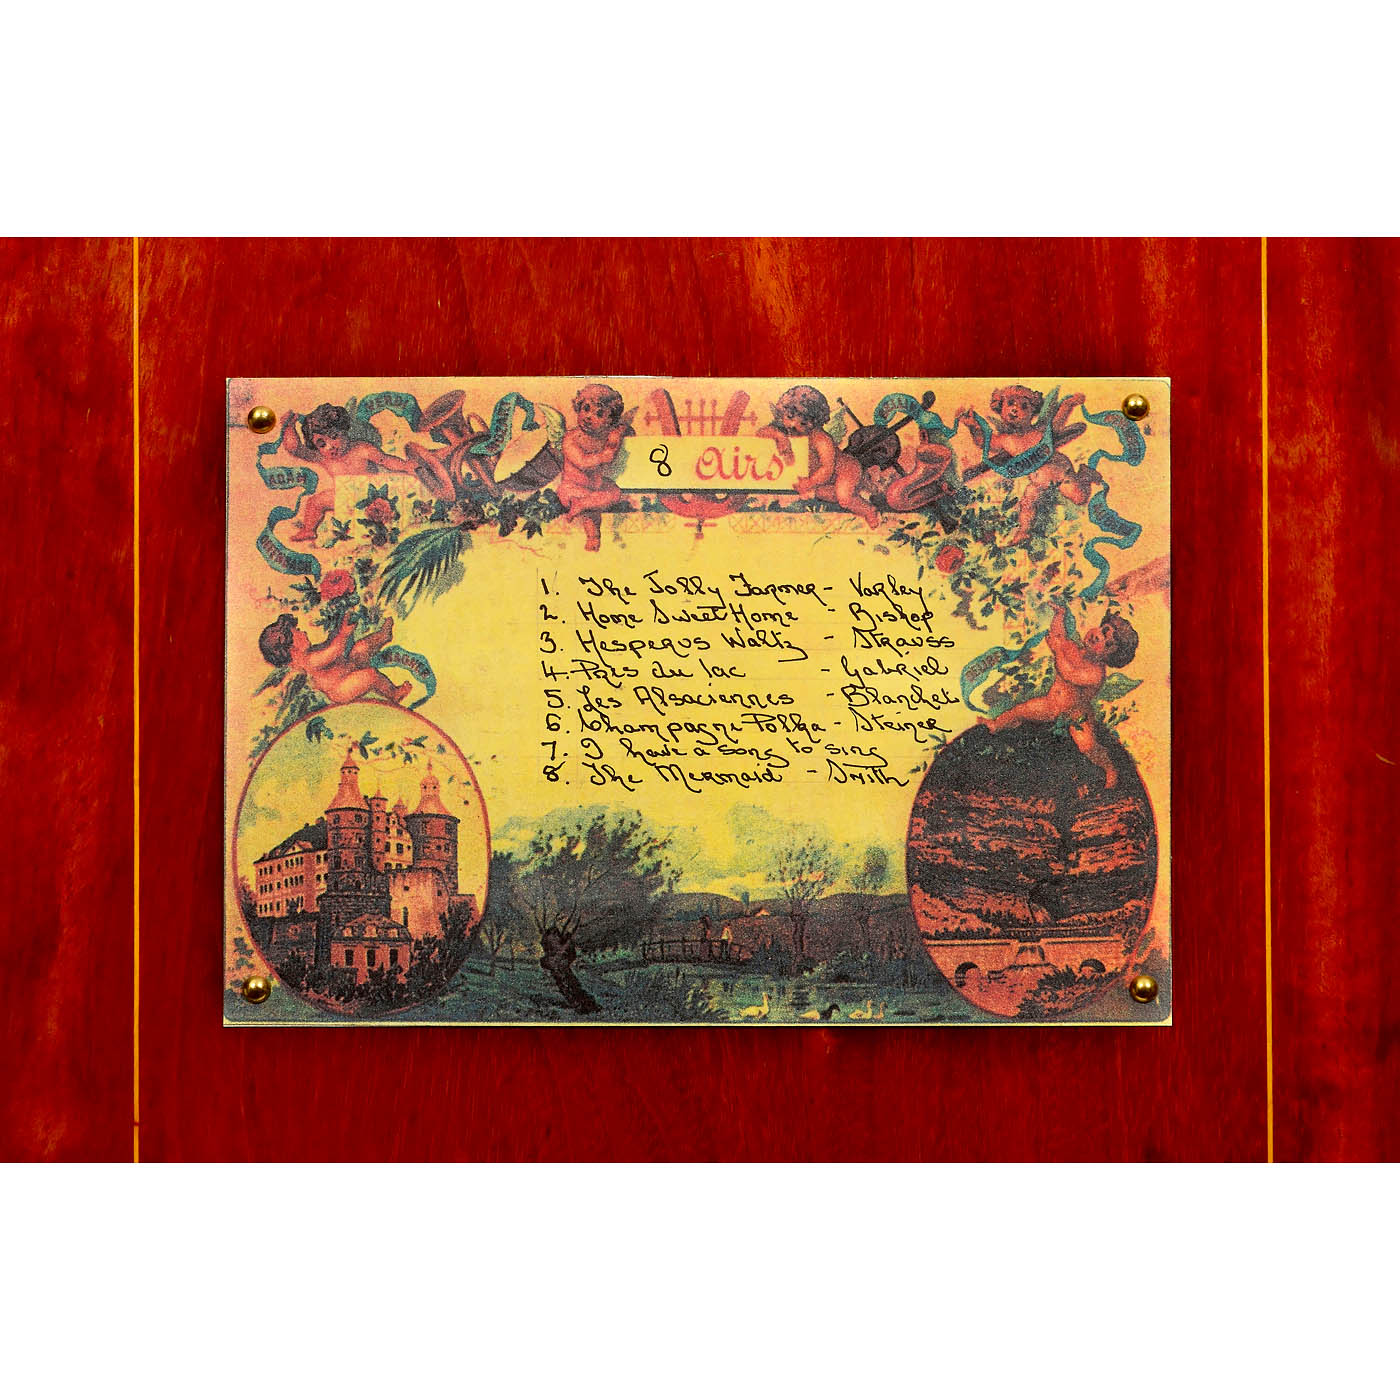 8 Airs
ADAM
1. The Jolly Farmer - Varley
2. Home Sweet Home - Bishop
3. Hesperus Waltz - Strauss
4. Près du lac - Gabriel
5. Les Alsaciennes - Blanchet
6. Champagne Polka - Steiner
7. I have a song to sing
8. The Mermaid - Smith